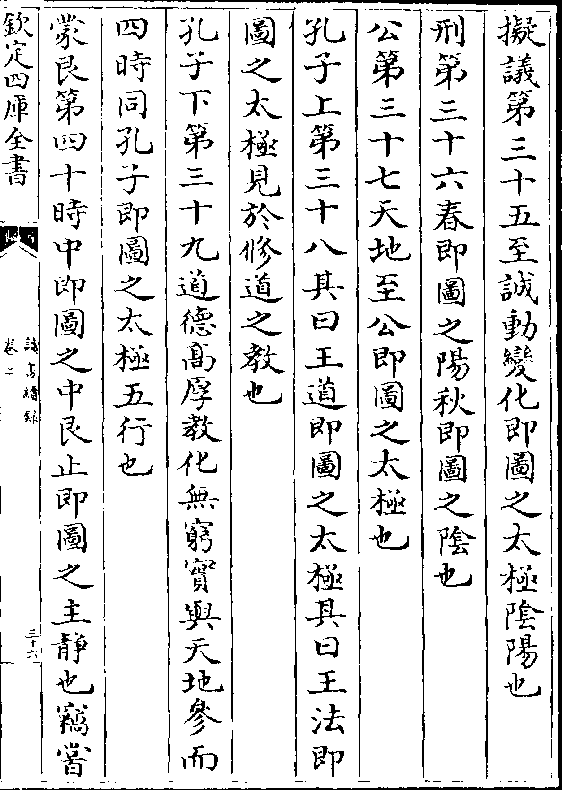 擬議第三十五至誠動變化即圖之太極陰陽也
刑第三十六春即圖之陽秋即圖之陰也
公第三十七天地至公即圖之太極也
孔子上第三十八其曰王道即圖之太極其曰王法即
圖之太極見於修道之教也
孔子下第三十九道德髙厚教化無窮實與天地參而
四時同孔子即圖之太極五行也
蒙艮第四十時中即圖之中艮止即圖之主靜也竊嘗
欽定四庫全書
卷二
三十六